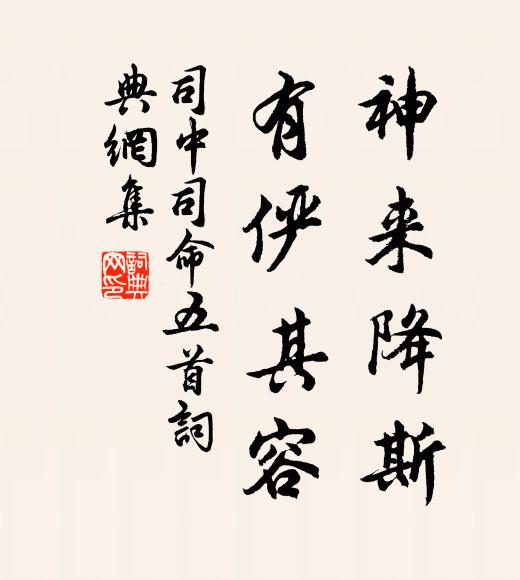 神来降斯
有俨其容
司中司命五首詞
典網集
詞典网印